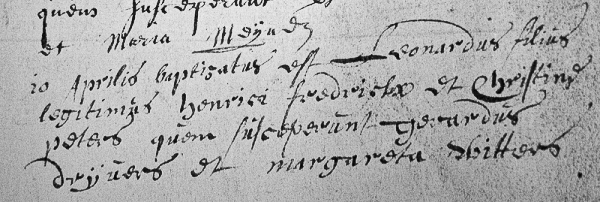 quem susceperunt
et Maria Meÿnen
10 Aprilis baptizatus est Leonardus filius
legitimus Henrici fredrickx et Christinę
peters quem susceperunt Gerardus
drÿvers et margareta Witters